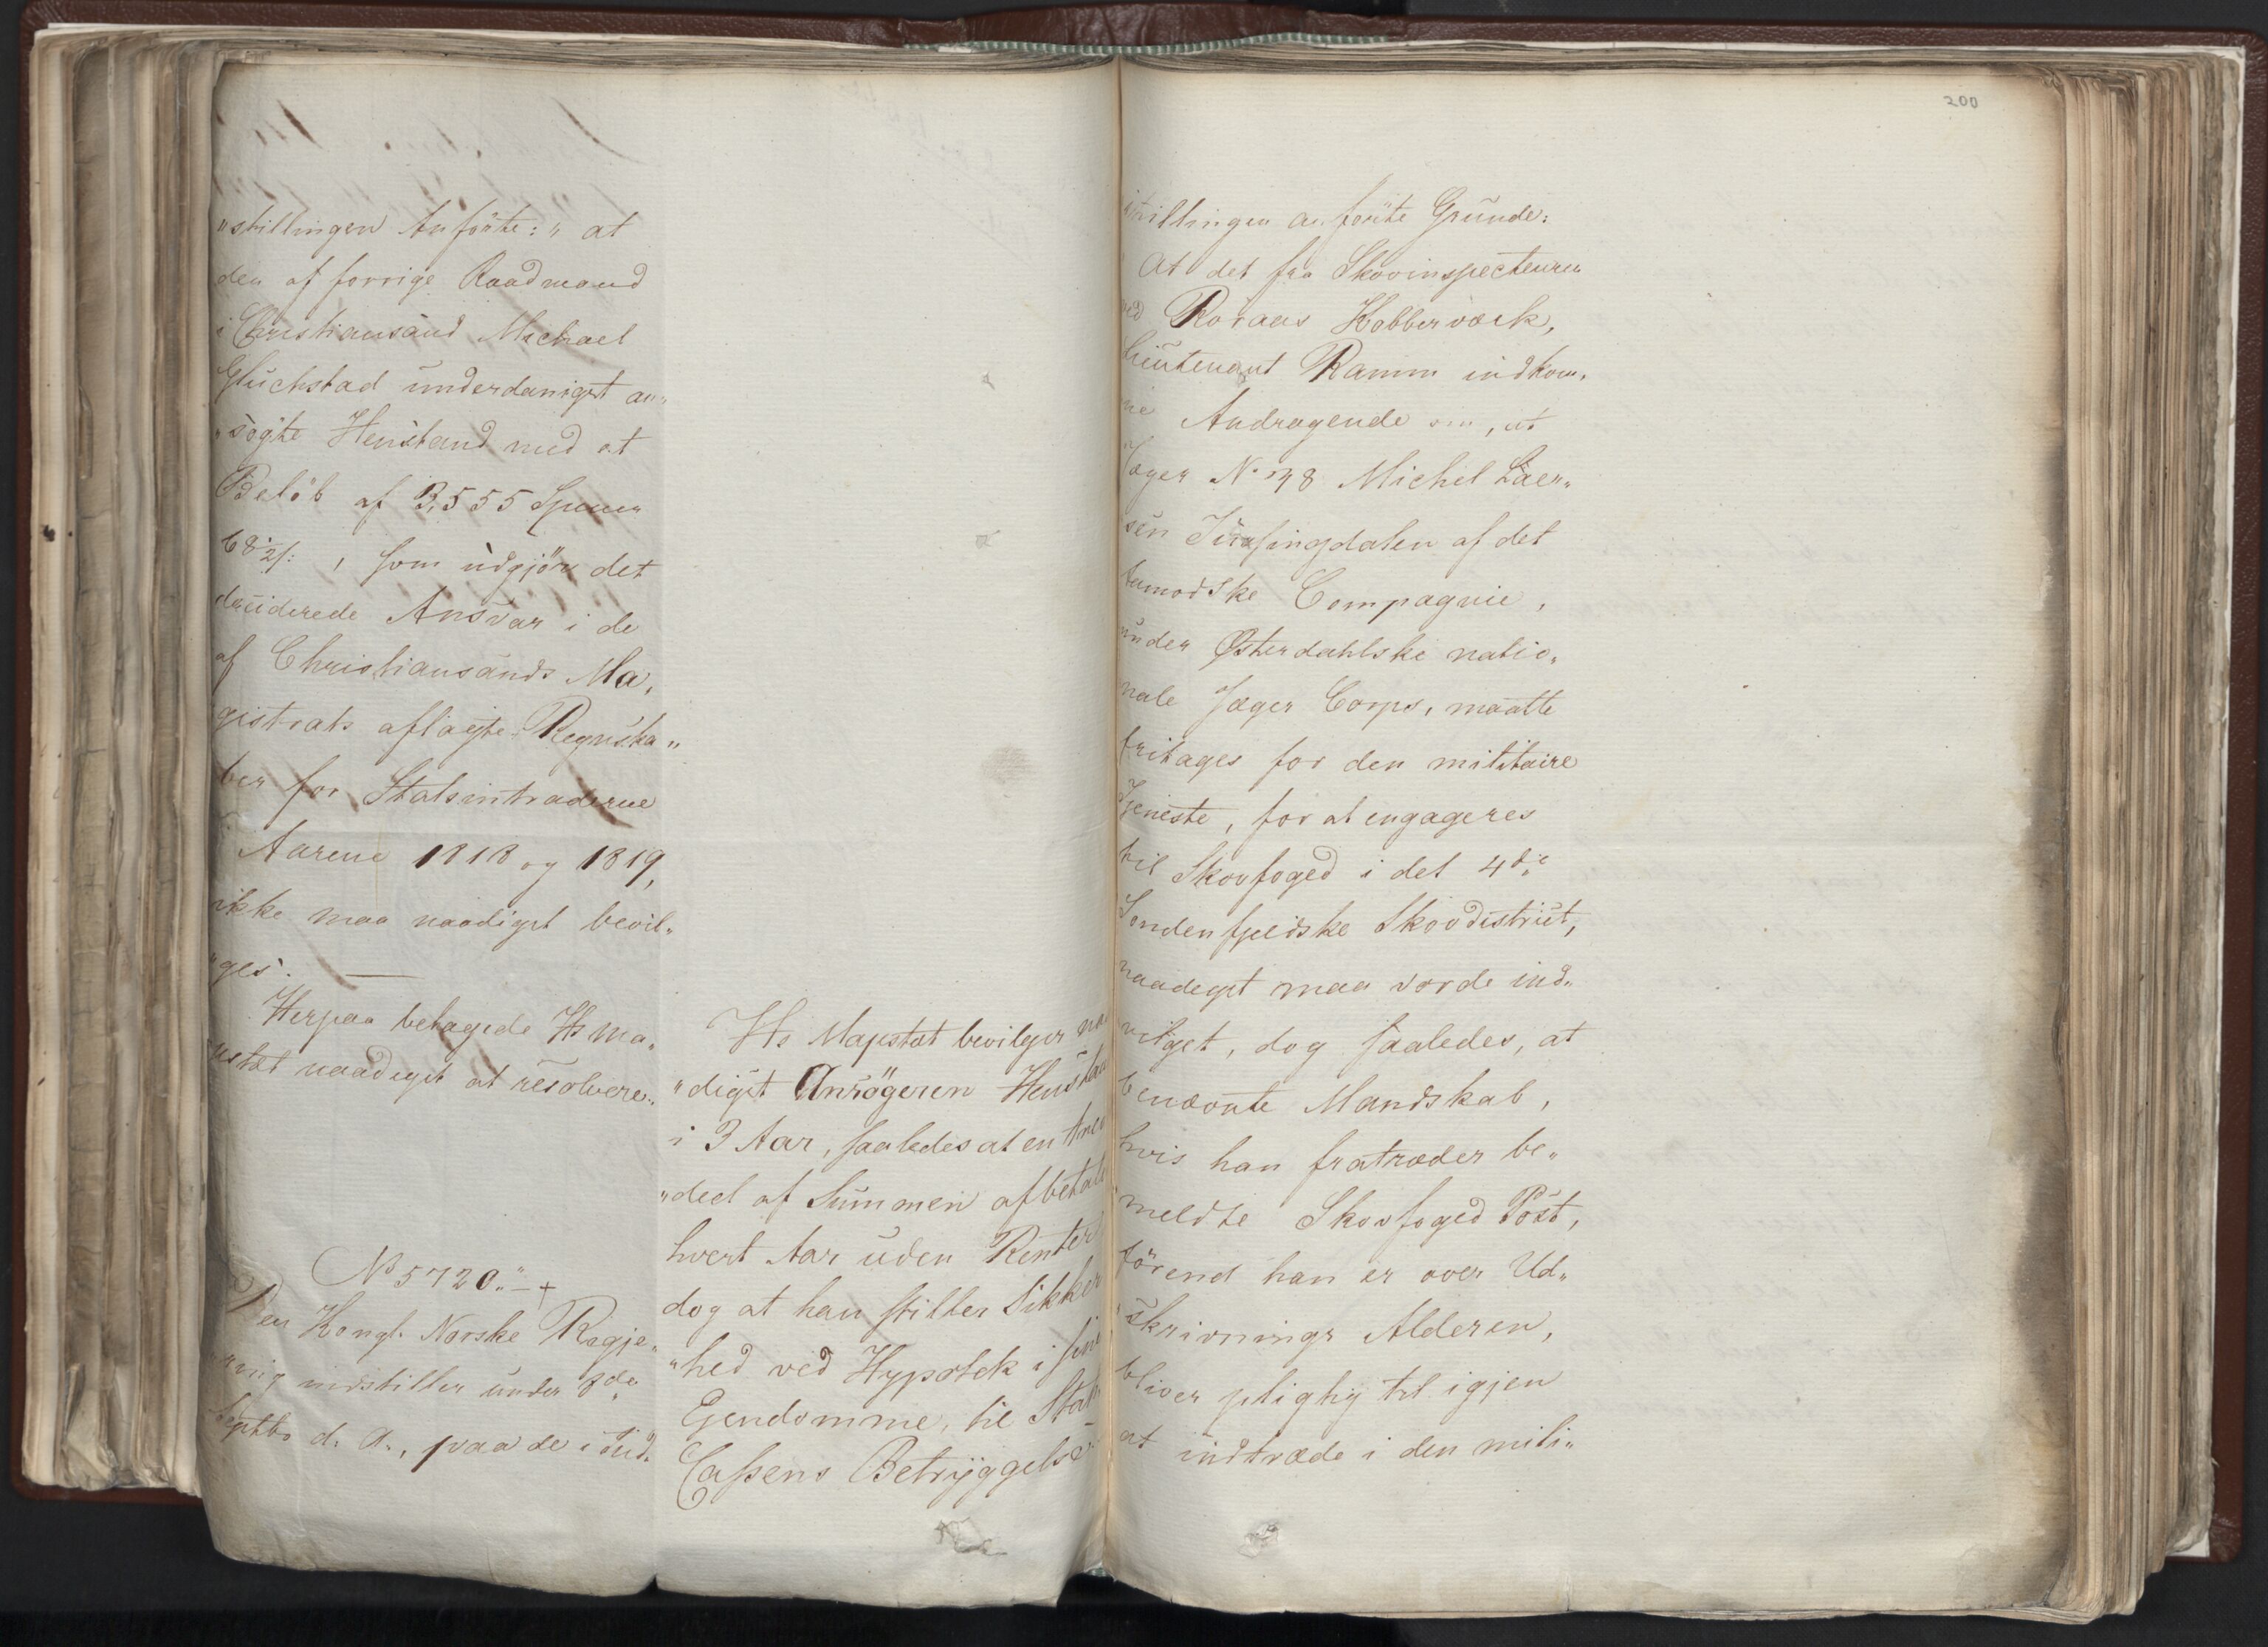 „stillingen Anförte: „ at
den af forrige Raadmand
i Christiansand Michael
Gluckstad underdanigst an„
„sögte Henstand med at
Belöb af 3,555 Spener
68½ s: , som udgjör det
deciderede Ansvar i de
af Christiansands Ma„
gistrats aflagte Regnska„
ber for Statsintraderne
Aarene 1818 og 1819,
ikke maa naadigst bevil„
„ges. —
Herpaa behagede Hs Ma„
jestæt naadigst at resolvere:
Hs Majestæt bevilger naa
„digst Ansögeren Henstand
i 3 Aar, saaledes at en Tre
„deel af Summen afbetales
hvert Aar uden Renter
dog at han stiller Sikker
„hed ved Hypothek i sine
Ejendomme, til Stats
Cassens Betryggelse.
No 5720. „ — +
Den Kongl. Norske Regje„
„ring indstiller under 8de
Septbr d. A., paa de i Ind„
„stillingen anförte Grunde:
At det fra Skovinspecteuren
ved Röraas Kobberværk,
Lieutenant Ramm indkom„
ne Andragende om, at
Jæger No 48 Michel Lar„
sen af det
Compagnie,
under Østerdahlske natio„
nale Jæger Corps, maatte
fritages for den militaire
Tjeneste, for at engageres
til Skovfoged i det 4de
Söndenfjeldske Skovdistrict,
naadigst maa vorde ind„
vilget, dog saaledes, at
benævnte Mandskab,
hvis han fratræder be„
meldte Skovfoged Post,
förend han er over Ud„
skrivnings Alderen,
bliver pligtig til igjen
at indtræde i den mili„
200